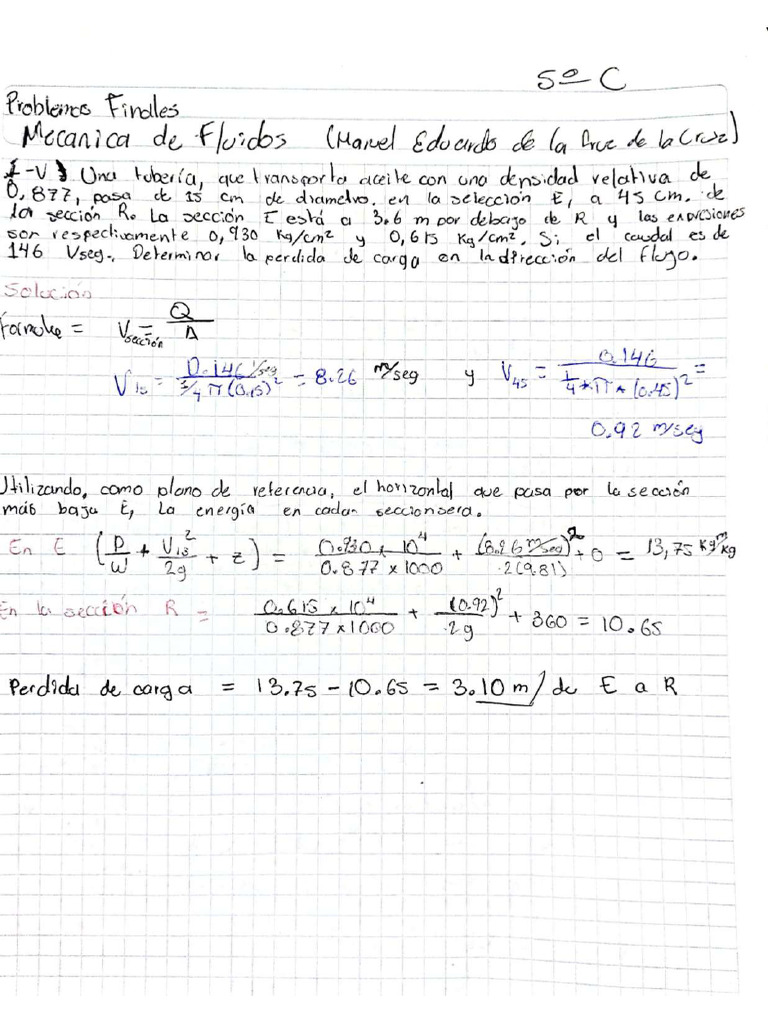 5º C
Problemas Finales
Mecanica de Fluidos (Manuel Eduardo de la Cruz de la Cruz)
I-V) Una tubería, que transporta aceite con una densidad relativa de
0,877, pasa de 15 cm de diametro, en la selección E, a 45 cm. de
la sección R. La sección E está a 3.6 m por debajo de R y las
son respectivamente 0,930 Kg/cm² y 0,615 Kg/cm². Si el caudal es de
146 l/seg., Determinar la perdida de carga en la dirección del flujo.
Solución
Formula = Vsección = Q / A
V15 = 0.146 / 1/4 π (0.15)² = 8.26 m/seg y V45 = 0.146 / 1/4 * π * (0.45)² =
0.92 m/seg
Utilizando, como plano de referencia, el horizontal que pasa por la sección
más baja E, La energía en cada seccion sera.
En E (P/w + V15²/2g + z) = 0.930 x 10⁴ / 0.877 x 1000 + (8.26 m/seg)² / 2(9.81) + 0 = 13,75 Kgm/Kg
En la sección R = 0.615 x 10⁴ / 0.877 x 1000 + (0.92)² / 2g + 360 = 10.65
Perdida de carga = 13.75 - 10.65 = 3.10 m / de E a R